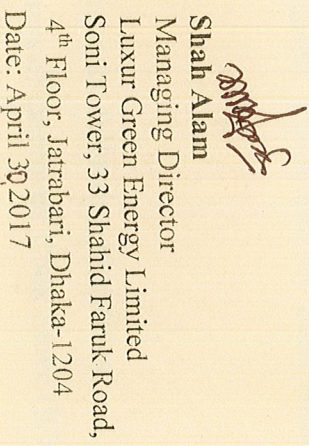 Shah Alam
Managing Director
Luxur Green Energy Limited
Soni Tower, 33 Shahid Faruk Road,
4th Floor, Jatrabari, Dhaka-1204
Date: April 30, 2017